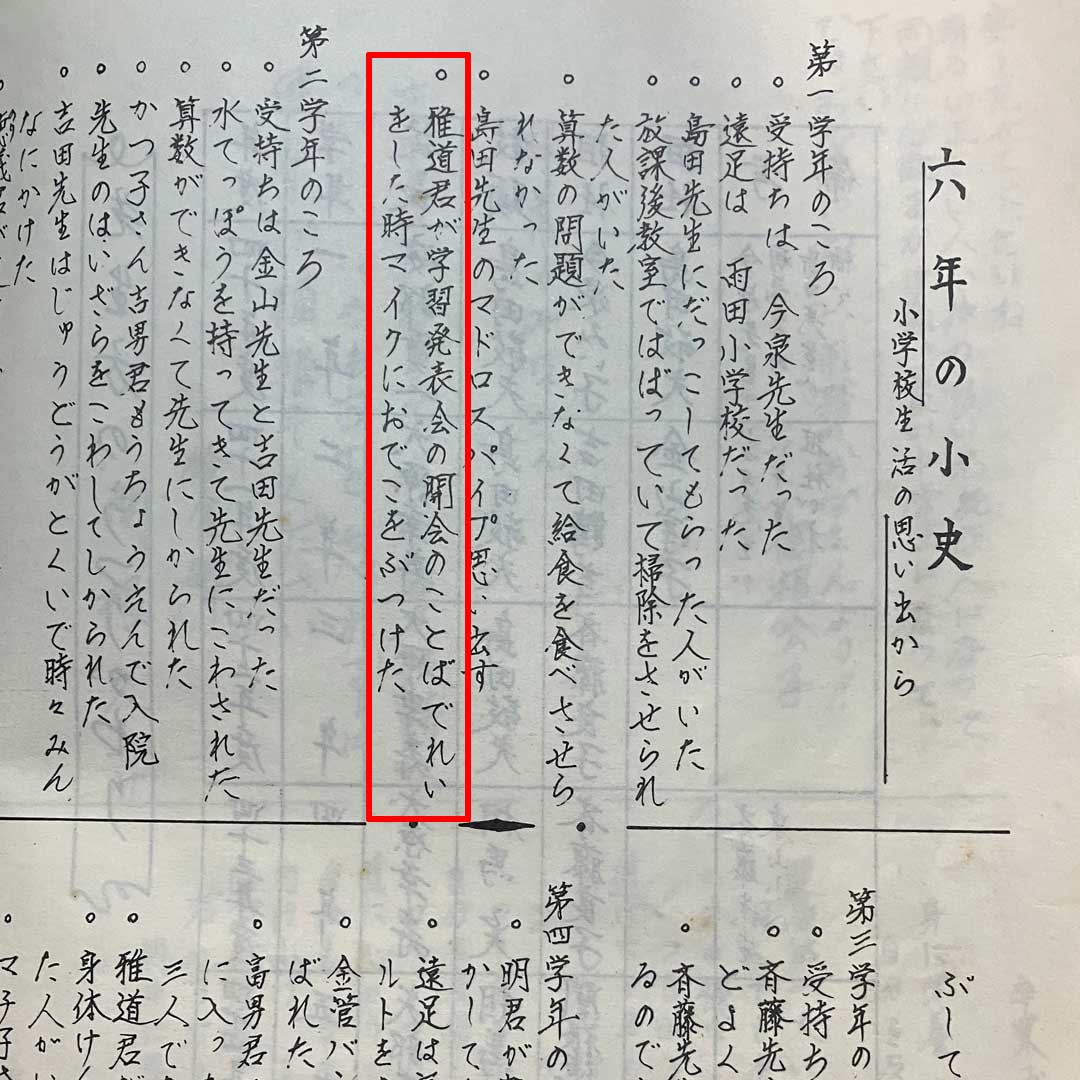 六年の小史
小学校生活の思い出から
第一学年のころ
。受持ちは 今泉先生だった
。遠足は 雨田小学校だった
。島田先生にだっこしてもらった人がいた
。放課後教室ではばっていて掃除をさせられ
た人がいた
。算数の問題ができなくて給食を食べさせら
れなかった
。島田先生のマドロスパイプ思い出す
。雅道君が学習発表会の開会のことばでれい
をした時マイクにおでこをぶつけた
第二学年のころ
。受持ちは金山先生と吉田先生だった
。水てっぽうを持ってきて先生にこわされた
。算数ができなくて先生にしかられた
。かつ子さん吉男君もうちょうえんで入院
。先生のはいざらをこわしてしかられた
。吉田先生はじゅうどうがとくいで時々みん
なにかけた
ぶして
第三学年の
。受持ち
。斉藤先
どよく
。斉藤先
るので
第四学年の
。明君が
かして
。遠足は
ルトを
。金管バ
ばれた
。富男君
に入っ
三人で
。雅道君が
。身体けん
た人が